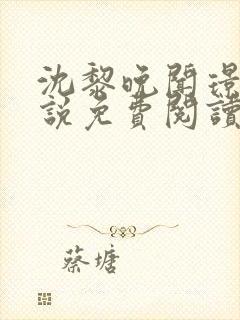 沈黎晚聞璟
說免費閱讀
蔡塘